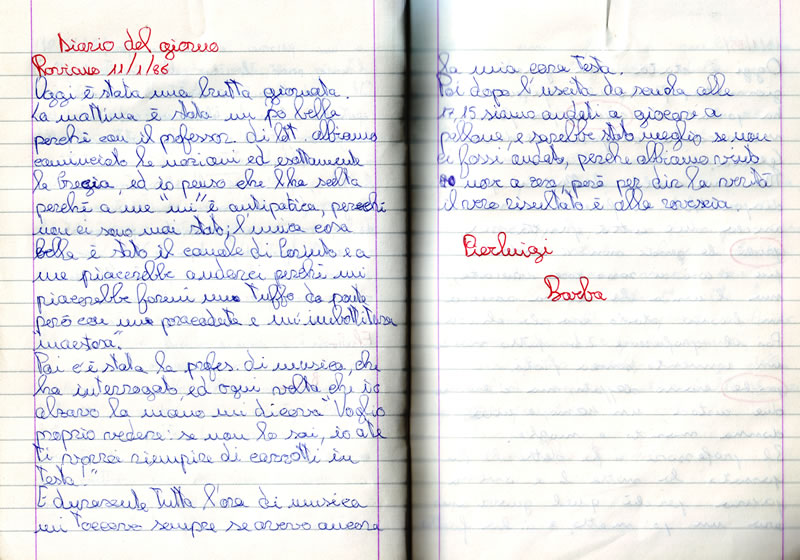 Diario del giorno
Roviano 11/1/86
Oggi è stata una brutta giornata.
La mattina è stata un po bella
perché con il professor. di let. abbiamo
cominciato le nazioni ed esattamente
la Grecia, ed io penso che l'ha scelta
perché a me "mi" è antipatica, perché
non ci sono mai stato; l'unica cosa
bella è stato il canale di Corinto e a
me piacerebbe andarci perché mi
piacerebbe farmi un tuffo da ponte
però con un paracadute e un'imbottitura
"maestosa".
Poi c'è stata la profes. di musica, che
ha interrogato ed ogni volta che io
alzavo la mano mi diceva "Voglio
proprio vedere: se non lo sai, io a te
ti vorrei riempire di cazzotti in
testa!"
E durante tutta l'ora di musica
mi toccavo sempre se avevo ancora
la mia cara testa.
Poi dopo l'uscita da scuola alle
17,15 siamo andati a giocare a
pallone, e sarebbe stato meglio se non
ci fossi andato, perché abbiamo vinto
nove a zero, però per dir la verità
il vero risultato è alla rovescia.
Pierluigi
Barba